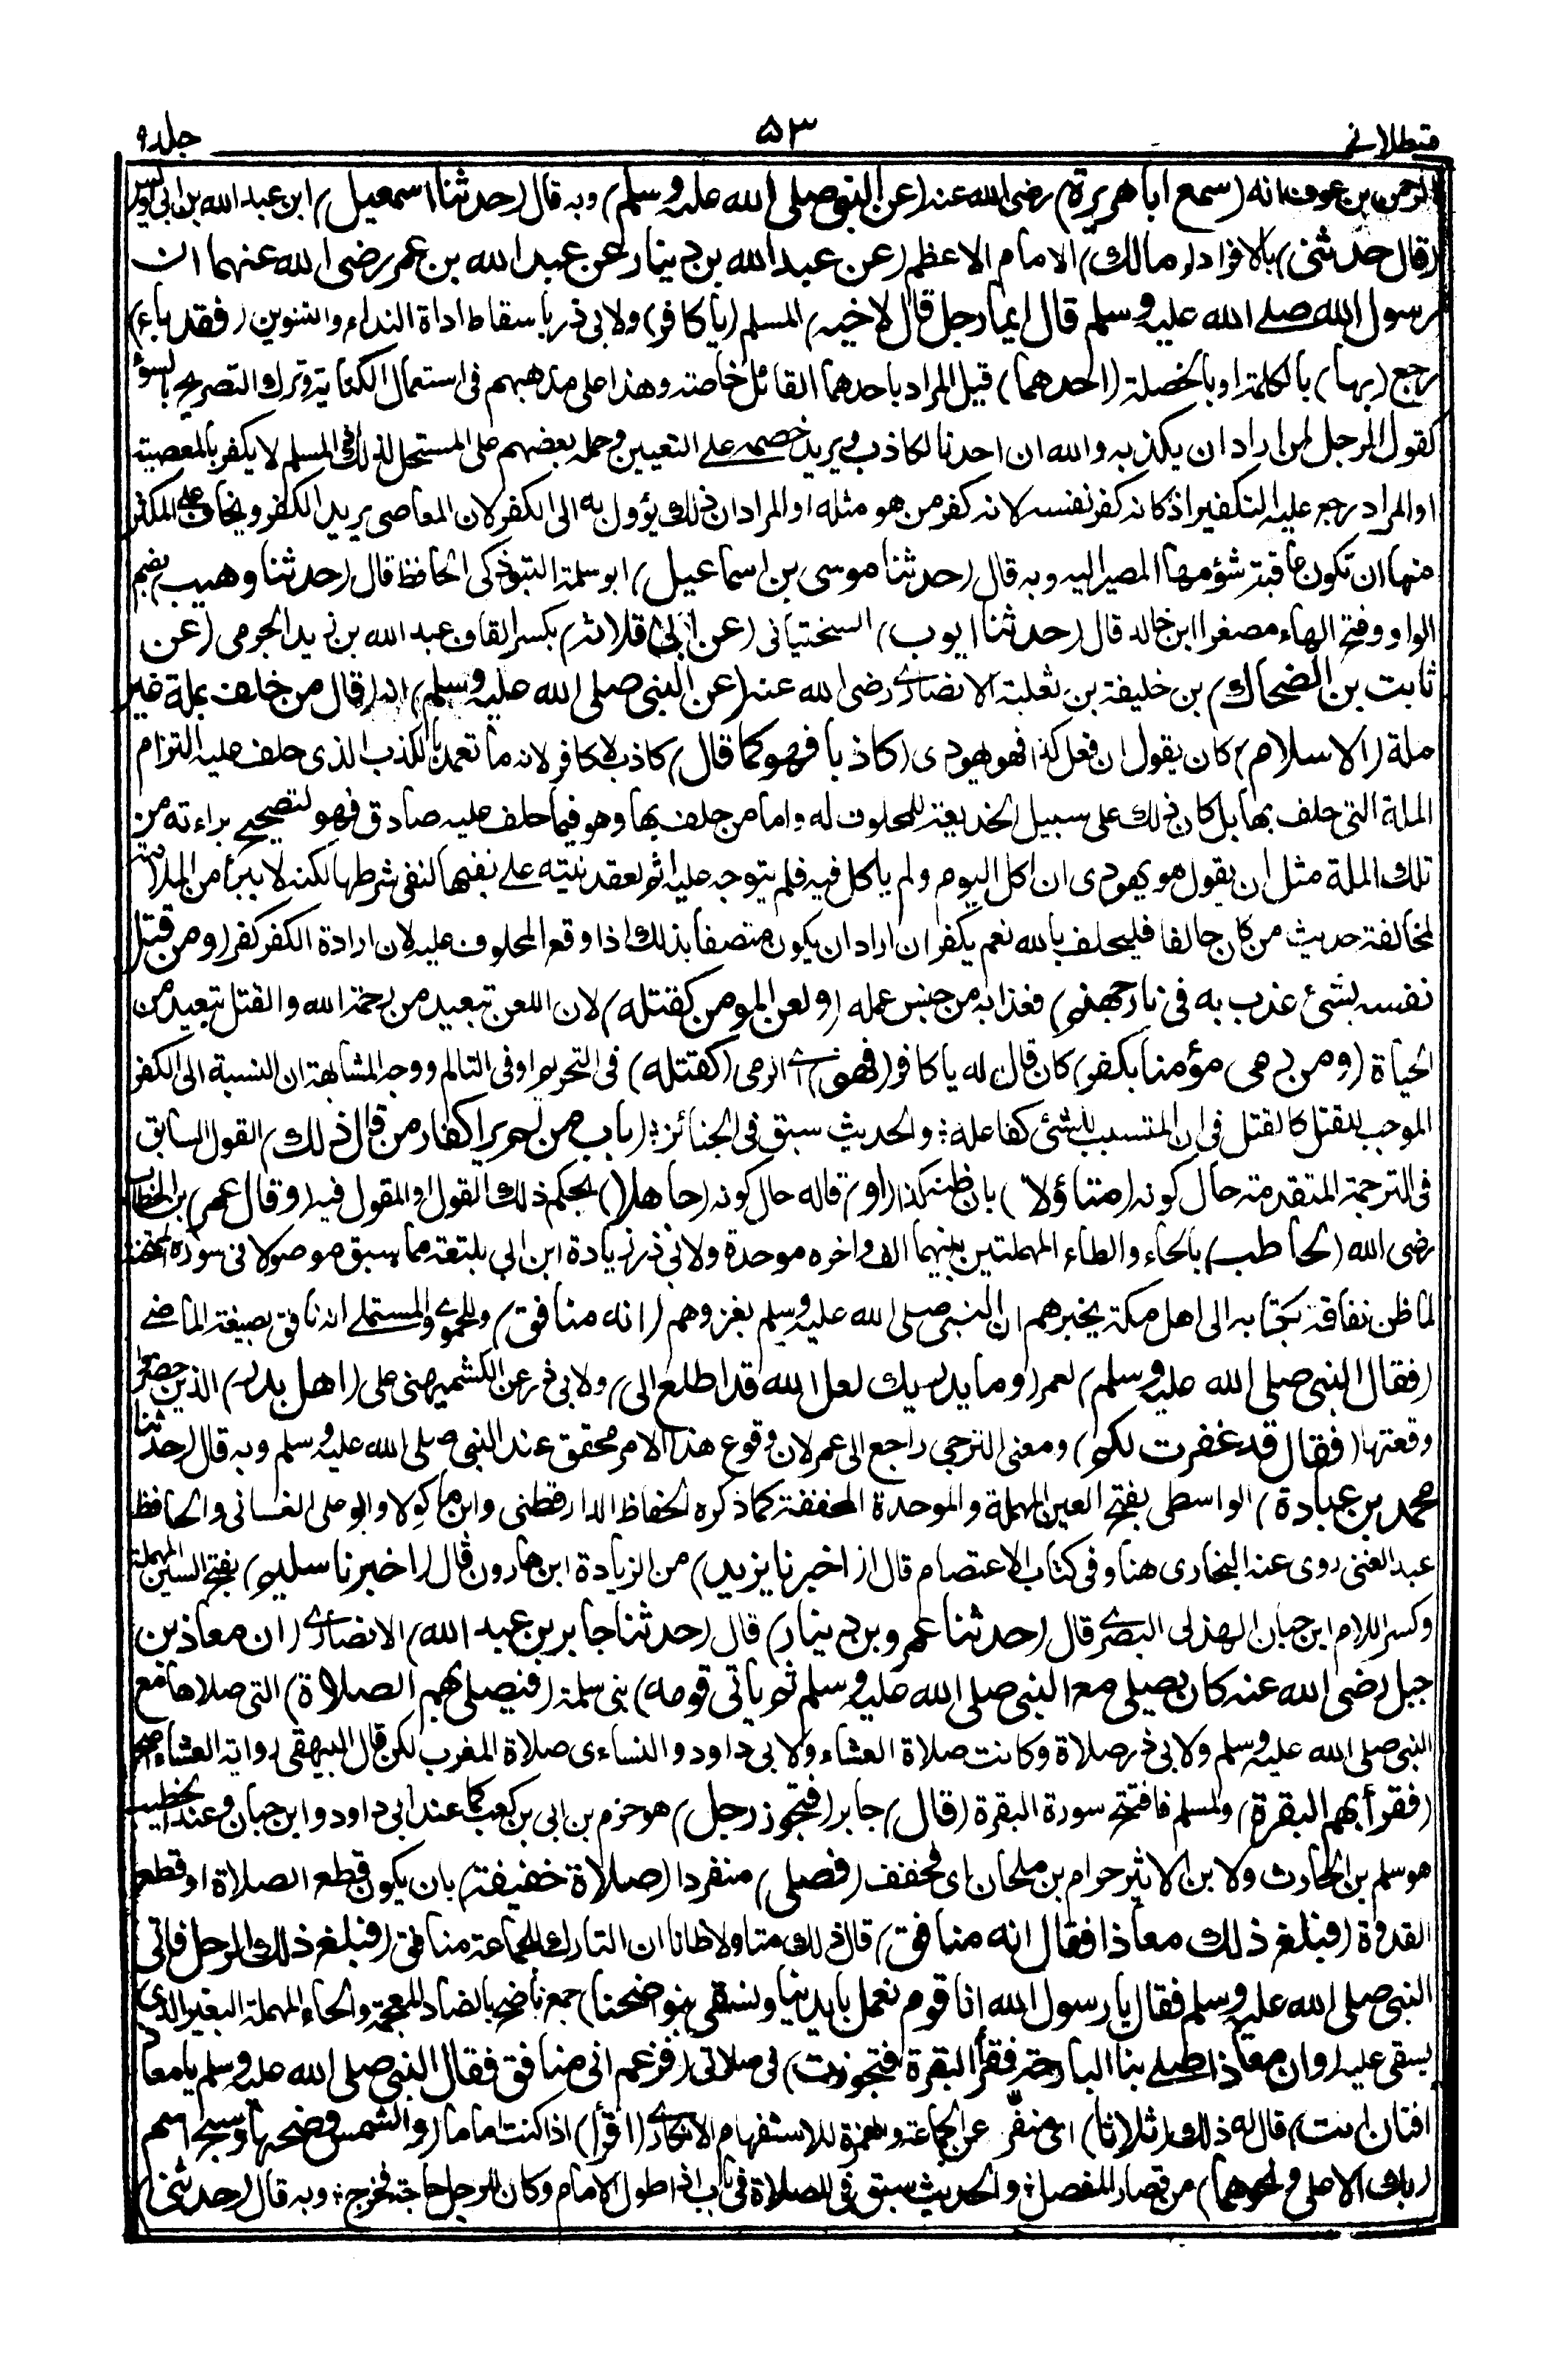 قسطلاني ۵۳ جلد ۹
الرحمن بن عوف انه (سمع ابا هريرة) رضى الله عنه (عن النبي صلى الله عليه وسلم) وبه قال (حدثنا اسمعيل) ابن عبد الله بن ابي اويس
(قال حدثنى) بالافراد (مالك) الامام الاعظم (عن عبد الله بن دينار عن عبد الله بن عمر رضى الله عنهما ان
رسول الله صلى الله عليه وسلم قال ايما رجل قال لاخيه) المسلم (يا كافر) ولابى ذر باسقاط اداة النداء والتنوين (فقد باء)
رجع (بها) بالكلمة او بالخصلة (احدهما) قيل المراد باحدهما القائل خاصة وهذا على مذهبهم فى استعمال الكناية وترك التصريح بالسوء
كقول الرجل لمن اراد ان يكذبه والله ان احدنا لكاذب ويريد خصمه على التعيين وحمله بعضهم على المستحل لذلك اذ المسلم لا يكفر بالمعصية
او المراد رجع عليه التكفير اذ كانه كفر نفسه لانه كفر من هو مثله او المراد ان ذلك يؤول به الى الكفر لان المعاصى بريد الكفر ويخاف على المكثر
منها ان تكون عاقبة شؤمها المصير اليه وبه قال (حدثنا موسى بن اسماعيل) ابو سلمة التبوذكى الحافظ قال (حدثنا وهيب) بضم
الواو وفتح الهاء مصغرا ابن خالد قال (حدثنا ايوب) السختيانى (عن ابى قلابة) بكسر القاف عبد الله بن زيد الجرمى (عن
ثابت بن الضحاك) بن خليفة بن ثعلبة الانصارى رضى الله عنه (عن النبى صلى الله عليه وسلم) انه (قال من حلف بملة غير
ملة (الاسلام) كان يقول ان فعل كذا فهو يهودى (كاذبا فهو كما قال) كاذب لا كافر لانه ما تعمد بالكذب الذى حلف عليه التزام
الملة التى حلف بها بل كان ذلك على سبيل الخديعة للمحلوف له واما من حلف بها وهو فيما حلف عليه صادق فهو لتصحيح براءته من
تلك الملة مثل ان يقول هو يهودى ان اكل اليوم ولم ياكل فيه فلم يتوجه عليه اثم لعقد نيته على نفيها لنفى شرطها لكنه لا يبرأ من الملامة
لمخالفة حديث من كان حالفا فليحلف بالله نعم يكفر ان اراد ان يكون متصفا بذلك اذا وقع المحلوف عليه لان ارادة الكفر كفر (ومن قتل
نفسه بشئ عذب به فى نار جهنم) فعذابه من جنس عمله (ولعن المومن كقتله) لان اللعن تبعيد من رحمة الله والقتل تبعيد من
الحياة (ومن رمى مؤمنا بكفر) كان قال له يا كافر (فهو) اى الرمى (كقتله) فى التحريم او فى التالم ووجه المشابهة ان النسبة الى الكفر
الموجب للقتل كالقتل فى ان المتسبب للشئ كفاعله ؛ والحديث سبق فى الجنائز ؛ (باب من لم ير اكفار من قال ذلك) القول السابق
فى الترجمة المتقدمة حال كونه (متاؤلا) بان ظنه كذا (او) قاله حال كونه (جاهلا) بحكم ذلك القول او المقول فيه (وقال عمر) بن الخطاب
رضى الله (لحاطب) بالحاء والطاء المهملتين بينهما الف واخره موحدة ولابى ذر زيادة ابن ابي بلتعة مما سبق موصولا فى سورة الممتحنة
لما ظن نفاقه بكتابه الى اهل مكة يخبرهم ان النبى صلى الله عليه وسلم يغزوهم (انه منافق) وللحموى والمستملى انه نافق بصيغة الماضى
(فقال النبى صلى الله عليه وسلم) لعمر (وما يدريك لعل الله قد اطلع الى) ولابى ذر عن الكشميهنى على (اهل بدر) الذين حضروا
وقعتها (فقال قد غفرت لكم) ومعنى الترجى راجع الى عمر لان وقوع هذا الامر محقق عند النبى صلى الله عليه وسلم وبه قال (حدثنا
محمد بن عبادة) الواسطى بفتح العين المهملة والموحدة المخففة كما ذكره الحفاظ الدارقطنى وابن ماكولا وابو على الغسانى والحافظ
عبد الغنى روى عنه البخارى هنا وفى كتاب الاعتصام قال (اخبرنا يزيد) من الزيادة ابن هارون قال (اخبرنا سليم) بفتح السين المهملة
وكسر اللام ابن حبان الهذلى البصرى قال (حدثنا عمرو بن دينار) قال (حدثنا جابر بن عبد الله) الانصارى (ان معاذ بن
جبل رضى الله عنه كان يصلى مع النبى صلى الله عليه وسلم ثم ياتى قومه) بنى سلمة (فيصلى بهم الصلاة) التى صلاها مع
النبى صلى الله عليه وسلم ولابى ذر صلاة وكانت صلاة العشاء ولابى داود والنساءى صلاة المغرب لكن قال البيهقى رواية العشاء اصح
(فقرأ بهم البقرة) ولمسلم فافتتح سورة البقرة (قال) جابر (فتجوز رجل) هو حزم بن ابى بن كعب كما عند ابى داود وابن حبان وعند الخطيب
هو سلم بن الحارث ولابن الاثير حرام بن ملحان اى فخفف (فصلى) منفردا (صلاة خفيفة) بان يكون قطع الصلاة او قطع
القدوة (فبلغ ذلك معاذا فقال انه منافق) قال ذلك متاولا ظانا ان التارك للجماعة منافق (فبلغ ذلك الرجل فاتى
النبى صلى الله عليه وسلم فقال يا رسول الله انا قوم نعمل بايدينا ونسقى بنواضحنا) جمع ناضح بالضاد المعجمة والحاء المهملة البعير الذى
يسقى عليه (وان معاذا صلى بنا البارحة فقرأ البقرة فتجوزت) فى صلاتى (فزعم انى منافق فقال النبى صلى الله عليه وسلم يا معاذ
افتان انت) قال له ذلك (ثلاثا) اى منفّر عن الجماعة والهمزة للاستفهام الانكارى (اقرأ) اذا كنت اماما (والشمس وضحها وسبح اسم
ربك الاعلى ونحوهما) من قصار المفصل ؛ والحديث سبق فى الصلاة فى باب اذا طول الامام وكان للرجل حاجة فخرج ؛ وبه قال (حدثنى)